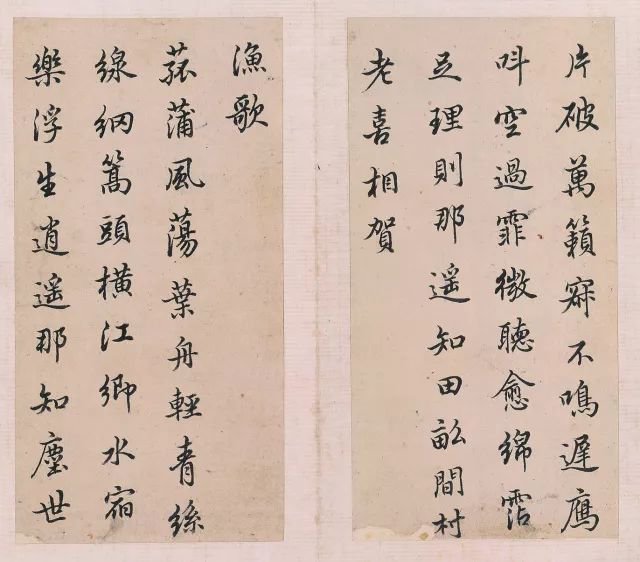 片破萬籟寂不鳴遲鴈
呌空過霏微聽愈綿霑
足理則那遥知田畝間村
老喜相賀
漁歌
菰蒲風蕩葉舟輕青絲
線網篙頭橫江鄉水宿
樂浮生逍遥那知塵世